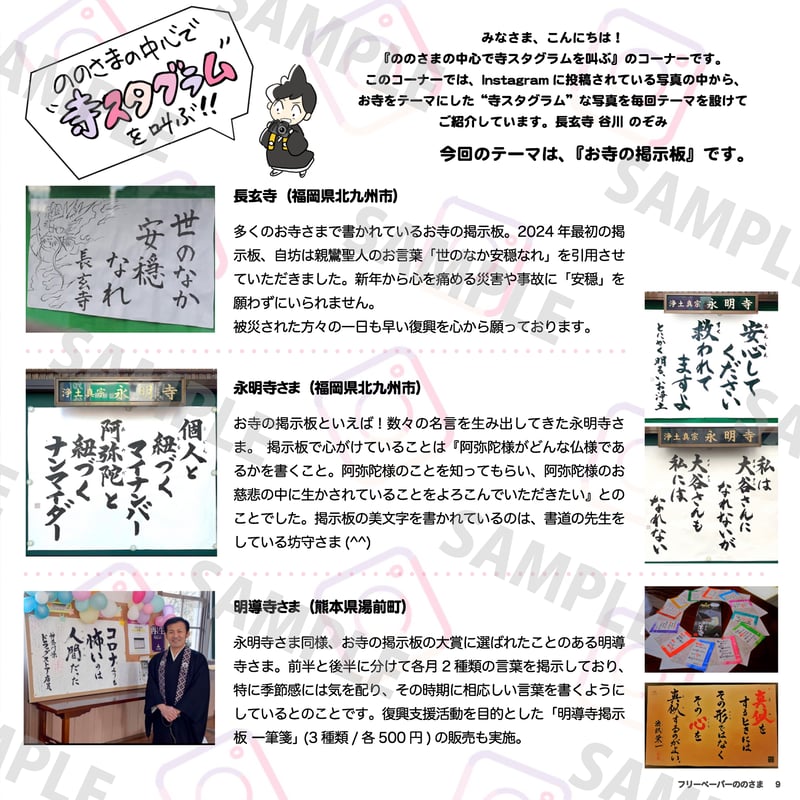 ののさまの中心で
"寺スタグラム"
を叫ぶ!!
みなさま、こんにちは！
『ののさまの中心で寺スタグラムを叫ぶ』のコーナーです。
このコーナーでは、Instagram に投稿されている写真の中から、
お寺をテーマにした“寺スタグラム”な写真を毎回テーマを設けて
ご紹介しています。長玄寺 谷川 のぞみ
今回のテーマは、『お寺の掲示板』です。
世のなか
安穏
なれ
長玄寺
長玄寺（福岡県北九州市）
多くのお寺さまで書かれているお寺の掲示板。2024 年最初の掲
示板、自坊は親鸞聖人のお言葉「世のなか安穏なれ」を引用させ
ていただきました。新年から心を痛める災害や事故に「安穏」を
願わずにいられません。
被災された方々の一日も早い復興を心から願っております。
浄土真宗 永明寺
個人と
紐づく
マイナンバー
阿弥陀と
紐づく
ナンマイダー
永明寺さま（福岡県北九州市）
お寺の掲示板といえば！数々の名言を生み出してきた永明寺さ
ま。 掲示板で心がけていることは『阿弥陀様がどんな仏様であ
るかを書くこと。阿弥陀様のことを知ってもらい、阿弥陀様のお
慈悲の中に生かされていることをよろこんでいただきたい』との
ことでした。掲示板の美文字を書かれているのは、書道の先生を
している坊守さま (^^)
浄土真宗 永明寺
安心して
ください
救われて
ますよ
とにかく明るいお浄土
浄土真宗 永明寺
私は
大谷さんに
なれないが
大谷さんも
私には
なれない
コロナよりも
怖いのは
人間だった
神奈川県
ドラッグストア店員
明導寺さま（熊本県湯前町）
永明寺さま同様、お寺の掲示板の大賞に選ばれたことのある明導
寺さま。前半と後半に分けて各月 2 種類の言葉を掲示しており、
特に季節感には気を配り、その時期に相応しい言葉を書くように
しているとのことです。復興支援活動を目的とした「明導寺掲示
板 一筆箋」(3 種類 / 各 500 円 ) の販売も実施。
真似を
するときには
その形ではなく
その心を
真似するのがよい。
渋沢栄一
フリーペーパーののさま 9
SAMPLE
SAMPLE
SAMPLE
SAMPLE
SAMPLE
SAMPLE
SAMPLE
SAMPLE
SAMPLE